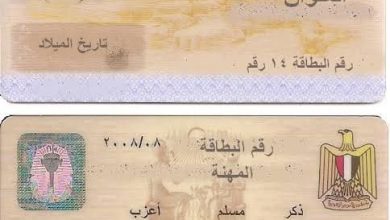 العنوان
تاريخ الميلاد
رقم البطاقة ١٤ رقم
٢٠٠٨/٠٨ رقم البطاقة
المهنة
ذكر مسلم أعزب